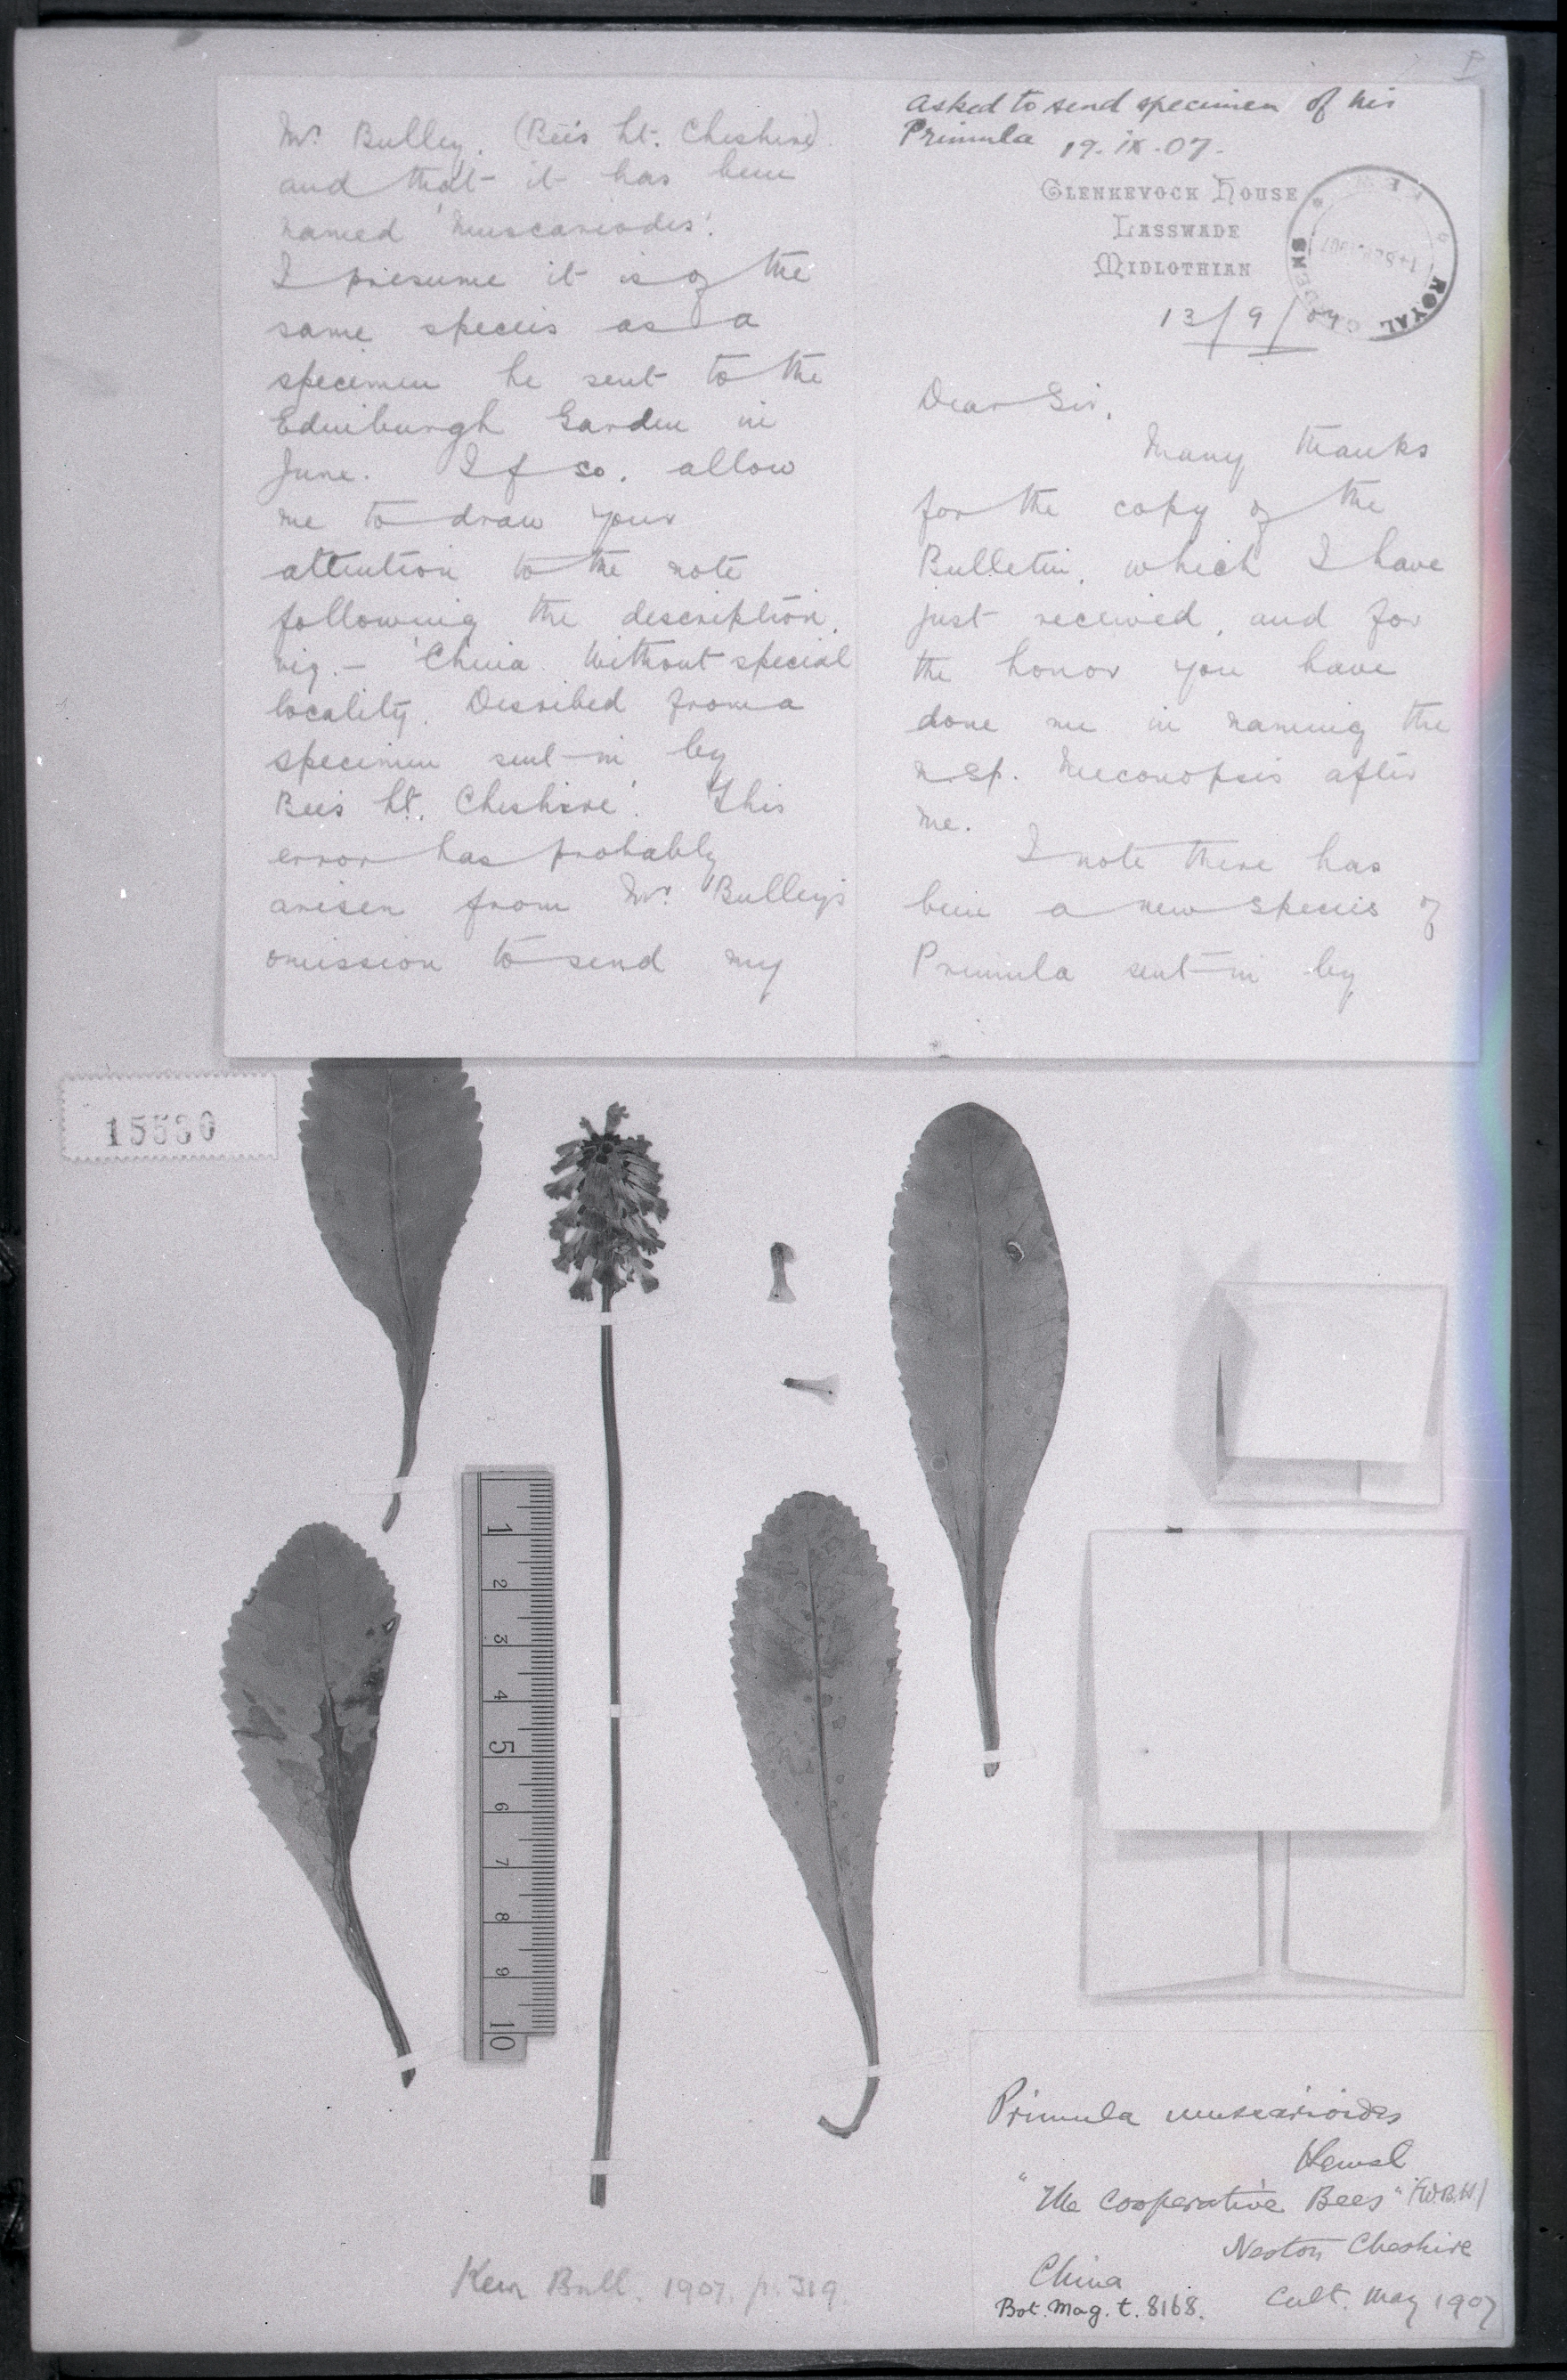 Asked to send specimen of his
Primula 19.IX.07.
GLENKEVOCK HOUSE
LASSWADE
MIDLOTHIAN
13/9/07
ROYAL GARDENS
Dear Sir,
Many thanks
for the copy of the
Bulletin, which I have
just received, and for
the honor you have
done me in naming the
n. sp. Meconopsis after
me.
I note there has
been a new species of
Primula sent in by
Mr. Bulley. (Bees Lt. Cheshire)
and that it has been
named 'Muscariodes'.
I presume it is of the
same species as a
specimen he sent to the
Edinburgh Garden in
June. If so, allow
me to draw your
attention to the note
following the description,
viz. - 'China. Without special
locality. Described from a
specimen sent in by
Bees Lt. Cheshire'. This
error has probably
arisen from Mr. Bulley's
omission to send my
15530
1
2
3
4
5
6
7
8
9
10
Primula muscarioides
Hemsl
"The Cooperative Bees" (W.B.H.)
Neston Cheshire
China
Cult. May 1907
Bot. Mag. t. 8168.
Kew Bull. 1907. p. 319.